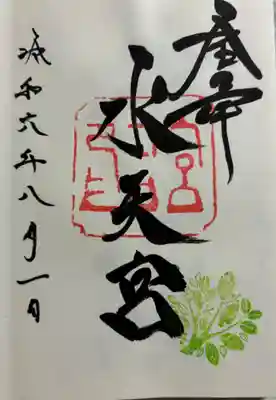 奉拝
水天宮
令和六年八月一日